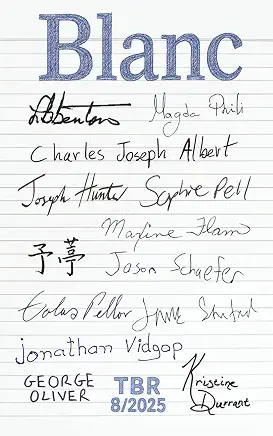 Blanc
Magda Phili
Charles Joseph Albert
Joseph Hunter Sophie Pell
Maxine Flam
予葶
Jason Schaefer
Eolas Pellor
jonathan Vidgop
GEORGE
OLIVER
TBR
8/2025
Kristine
Durrant